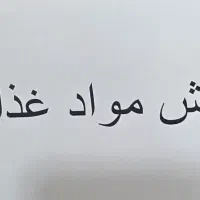 ش مواد غذا